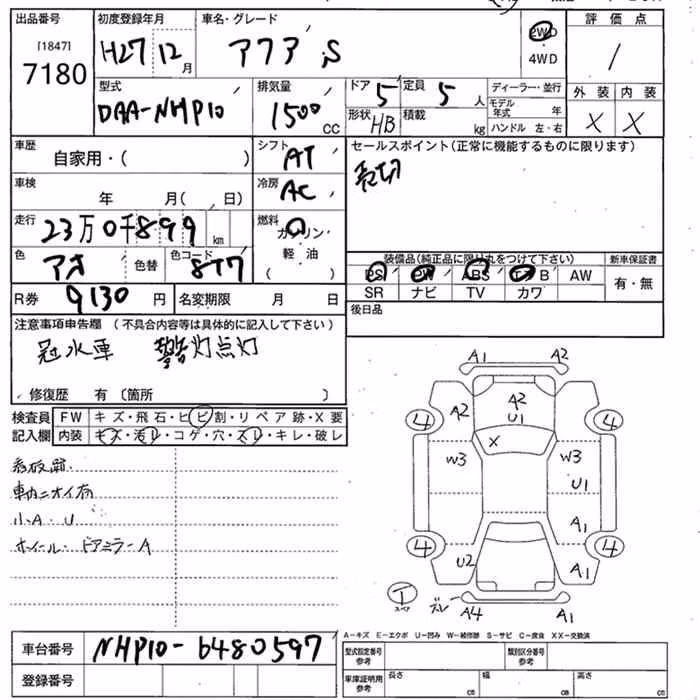 出品番号 初度登録年月 車名・グレード 評価点
[1847]
7180 H27 12月 アクア S 2WD
4WD /
型式 排気量 ドア 定員 ディーラー・並行 外装 内装
DAA-NHP10 1500 CC 5 5人 モデル年式 年 X X
形状 HB 積載 kg ハンドル 左・右
車歴 自家用・( ) シフト AT セールスポイント(正常に機能するものに限ります)
売切
車検 年 月( 日) 冷房 AC
走行 23万0千899km 燃料 ガソリン・
軽油
( )
色 アオ 色替 色コード 8T7
装備品(純正品に限り丸をつけて下さい) 新車保証書
PS PW ABS エアB AW 有・無
SR ナビ TV カワ
R券 9130円 名変期限 月 日 後日品
注意事項申告欄 (不具合内容等は具体的に記入して下さい)
冠水車 警告灯点灯
修復歴 有 〔箇所 〕
検査員 FW キズ・飛石・ヒビ割・リペア跡・X要
記入欄 内装 キズ・汚レ・コゲ・穴・スレ・キレ・破レ
看板跡
車内ニオイ有
小A・U
ホイール・ドアミラーA
A1 A2
4 A2 A2 U1 4
X
W3 W3
U1
A1
4 U2 4
A1
A4 A1
A-キズ E-エクボ U-凹み W-補修跡 S-サビ C-腐食 XX-交換済
車台番号 NHP10-6480597
型式指定番号 参考 類別区分番号 参考
登録番号
車庫証明用 参考 長さ cm 幅 cm 高さ cm